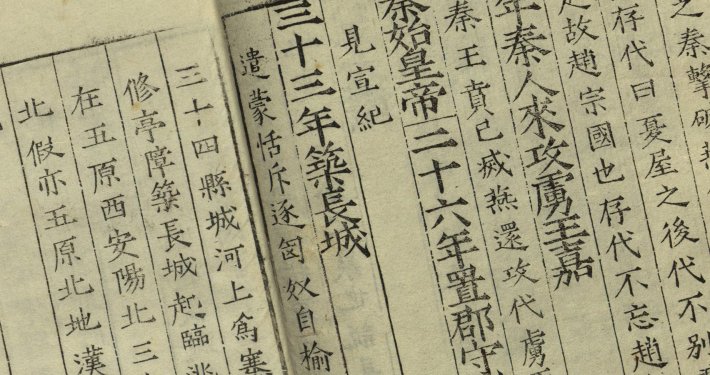 之秦擊破
存代曰憂屋之後代不別
故趙宗國也存代不忘趙
年秦人來攻虜王嘉
秦王賁已滅燕還攻代虜
秦始皇帝二十六年置郡守
見宣紀
三十三年築長城
遣蒙恬斥逐匈奴自榆
三十四縣城河上為塞
修亭障築長城起臨洮
在五原西安陽北三
北假亦五原北地漢